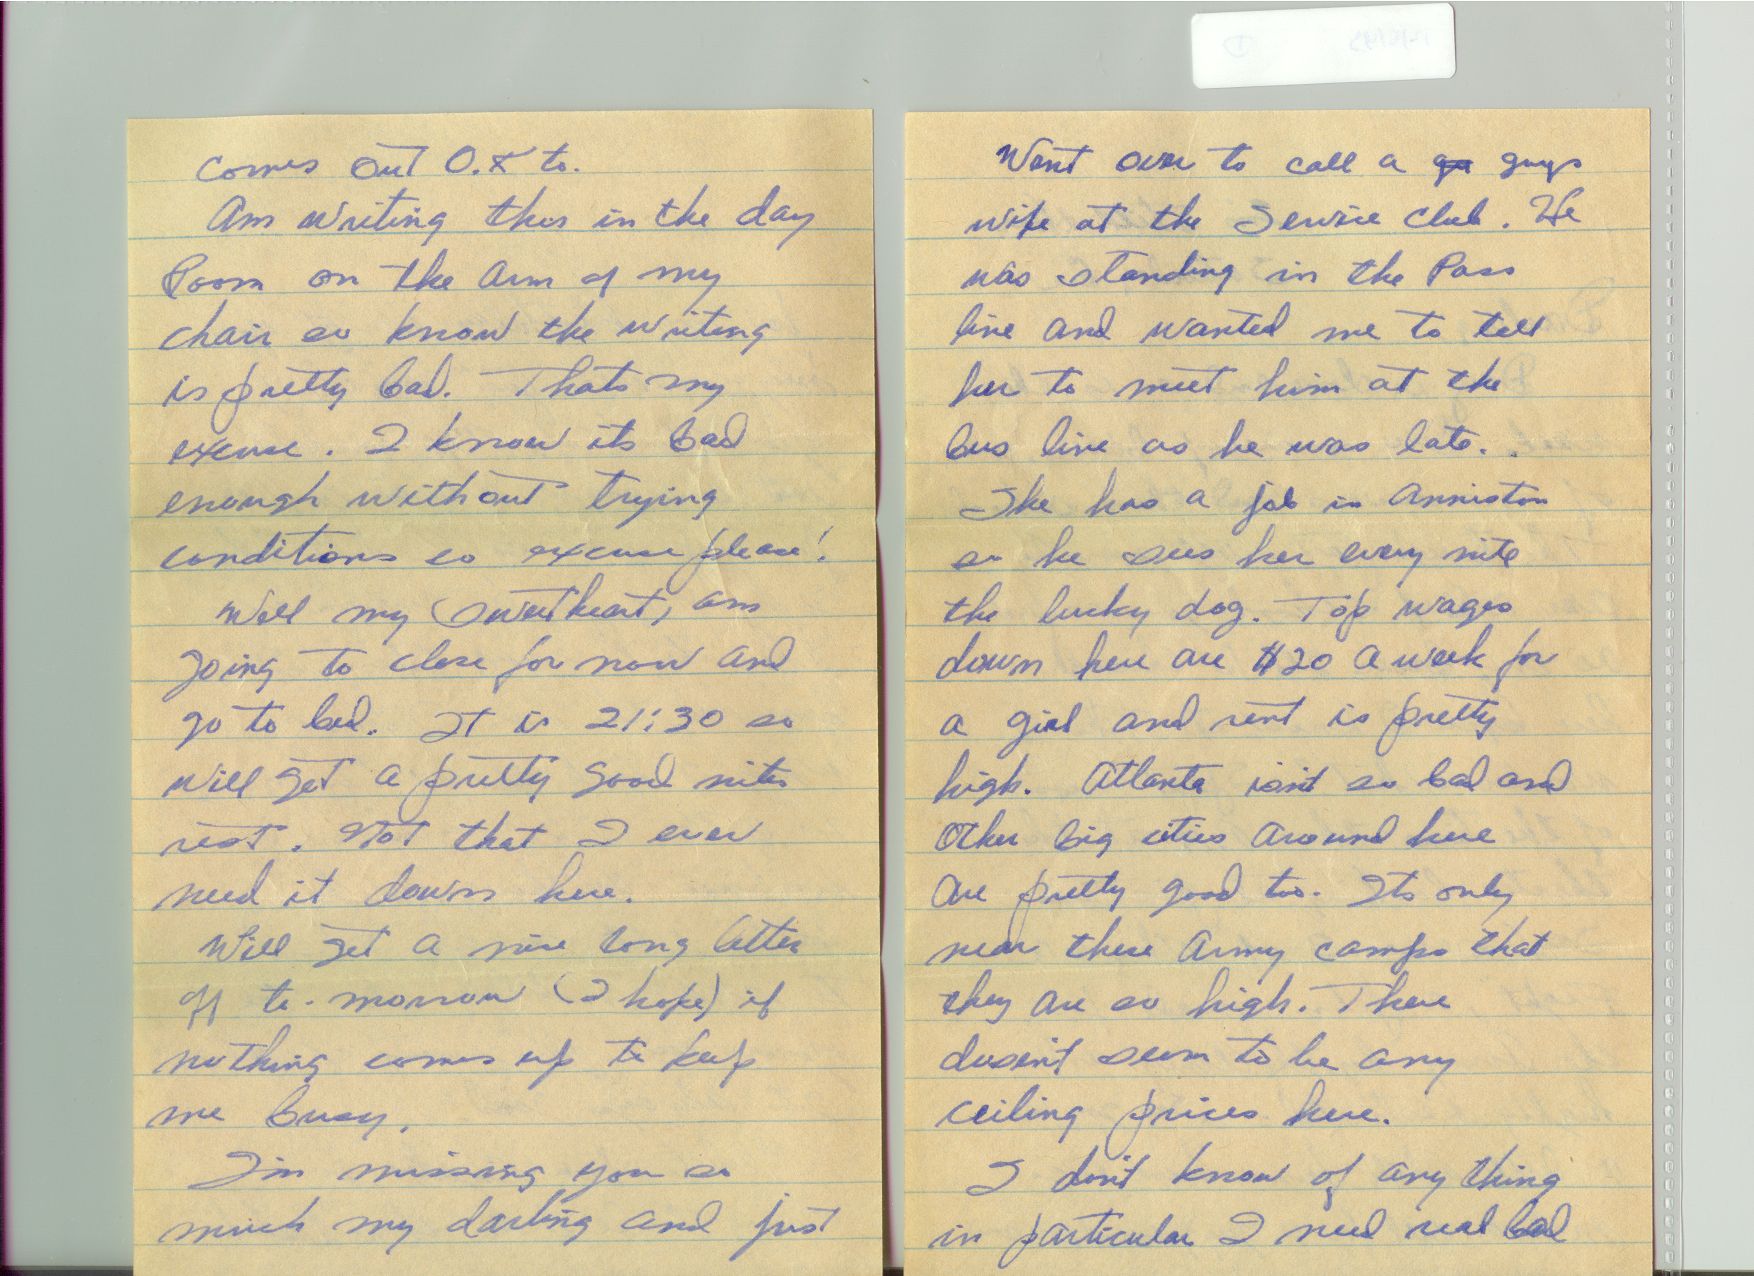 comes out O.K to.
Am writing this in the day
Room on the arm of my
chair so know the writing
is pretty bad. Thats my
excuse. I know its bad
enough without trying
conditions so excuse please!
Well my sweetheart, am
going to close for now and
go to bed. It is 21:30 so
will get a pretty good nites
rest. Not that I ever
need it down here.
Will get a nice long letter
off to-morrow (I hope) if
nothing comes up to keep
me busy.
I'm missing you so
much my darling and just
Went over to call a guys
wife at the Service Club. He
was standing in the Pass
line and wanted me to tell
her to meet him at the
bus line as he was late.
She has a job in Anniston
so he sees her every nite
the lucky dog. Top wages
down here are $20 a week for
a girl and rent is pretty
high. Atlanta isn't so bad and
other big cities around here
are pretty good too. Its only
near these Army camps that
they are so high. There
doesn't seem to be any
ceiling prices here.
I don't know of any thing
in particular I need real bad